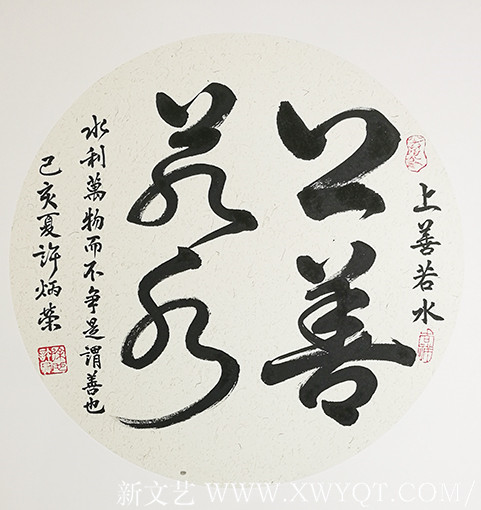 上善若水
上善
若水
水利萬物而不争是謂善也
己亥夏許炳榮
新文艺 WWW.XWYQT.COM/